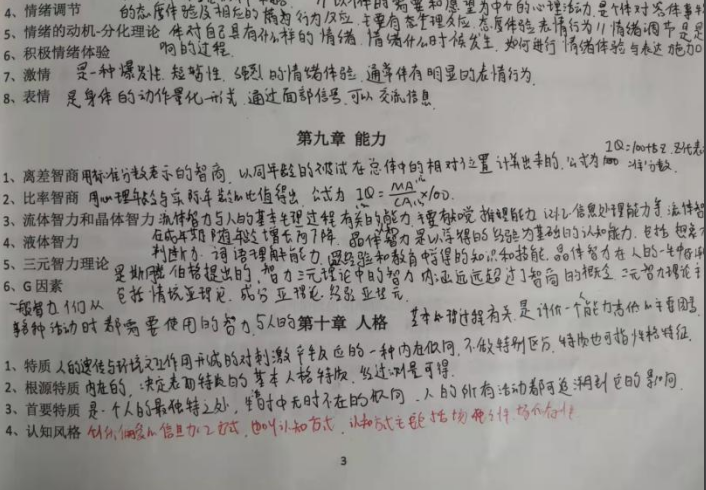 4、情绪调节 的态度体验及相应的 行为反应 以个体的需要和愿望为中介的心理活动 是个体对
5、情绪的动机-分化理论 体对自己具有什么样的情绪 情绪什么时候发生 如何进行情绪体验与表达施加
6、积极情绪体验 响的过程
7、激情 是一种爆发性、短暂性、强烈的情绪体验 通常伴有明显的表情行为
8、表情 是身体的动作量化形式 通过面部信号 可以交流信息
第九章 能力
IQ=100+15Z Z代表
1、离差智商 用标准分数表示的智商 以同年龄的被试在总体中的相对位置计算出来的 公式为 100 准分数
2、比率智商 用心理年龄与实际年龄的比值得出 公式为 IQ=MA/CA×100
3、流体智力和晶体智力 流体智力与人的基本生理过程有关的能力 主要有知觉 推理能力 记忆 信息处理能力等 流体智
4、液体智力 在成年期随年龄增长而下降 晶体智力是以学得的经验为基础的认知能力 包括
判断力 词语理解能力 经验和教育获得的知识和技能 晶体智力在人的一生中
5、三元智力理论 是斯腾伯格提出的 智力三元理论中的智力内涵远远超过了智商的概念 三元智力理论
6、G因素 包括情境亚理论 成分亚理论 经验亚理论
一般智力 人们从
事各种活动时都需要使用的智力 与人的 基本心理过程有关 是评价一个能力高低的主要因素
第十章 人格
1、特质 人的遗传与环境交互作用形成的对刺激产生反应的一种内在倾向 不做特别区分 特质也可指性格特征
2、根源特质 内在的 决定表面特质的基本人格特质 经过测量可得
3、首要特质 是一个人的最独特之处 生活中无时不在的倾向 人的所有活动都可追溯到它的影响
4、认知风格 信息加工方式 也叫认知方式 认知方式主要
3